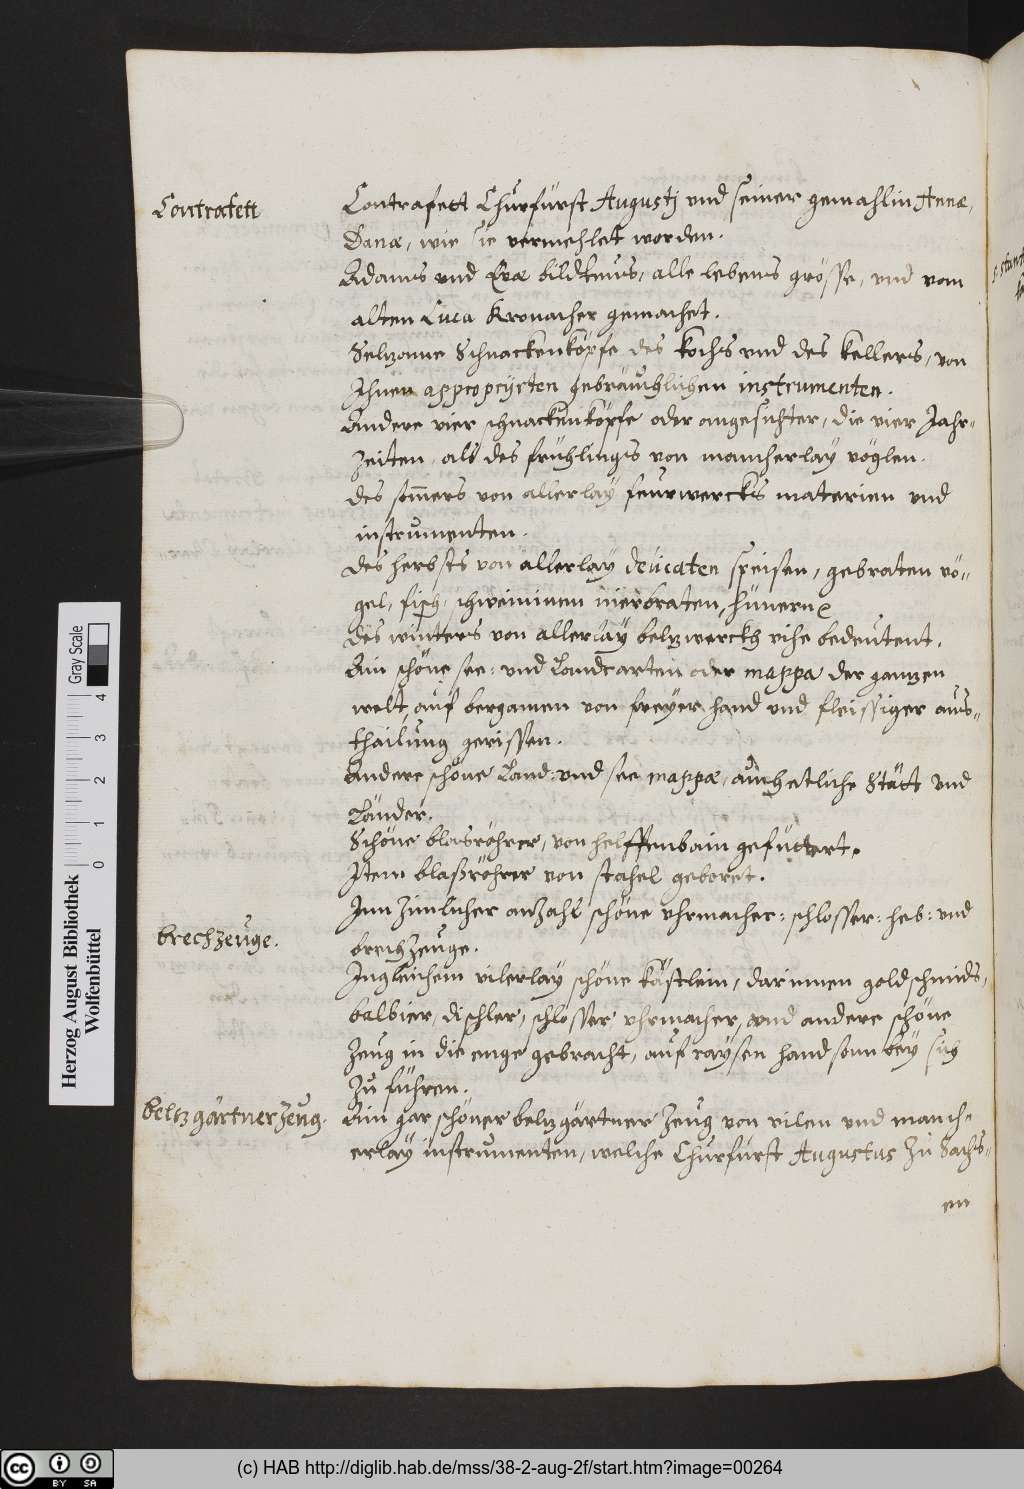 Contrafett
Contrafett Churfürst Augustj vnd seiner gemahlin Annæ,
Danæ, wie sie vermehlet worden.
Adams vnd Evæ bildtnus, alle lebens grösse, vnd vom
alten Luca Kronacher gemachet.
Selzame Schnackenköpfe des kochs vnd des kellers, von
Ihnen appropryrten gebräuchlichen instrumenten.
Andere vier schnackenköpfe oder angesichter, die vier Jahr-
zeiten, als des frühlings von mancherlay vöglen.
des som̄ers von allerlay feurwercks materien vnd
instrumenten.
des herbsts von allerlay delicaten speisen, gebraten vö-
gel, fisch, schweininen nierbraten, hünern
des winters von allerlay belzwerckh vihe bedeutent.
Ain schöne see: vnd Landcarten oder mappa der ganzen
welt, auf bergamen von freyer hand vnd fleissiger aus-
thailung gerissen.
Andere schöne Land: vnd see mappæ, auch etliche Stätt vnd
Länder.
Schöne blasröhrer, von helffenbain gefüttert.
Item blaßröhrer von stahel geboret.
brechzeuge.
Inn zimlicher anzahl schöne vhrmacher: schlosser: heb: vnd
brechzeuge.
Ingleichem vilerlay schöne kästlein, darinnen goldschmids,
balbier, dischler, schlosser vhrmacher, vnd andere schöne
zeug in die enge gebracht, auf raysen handsam bey sich
zu führen.
beltzgärtnerzeug.
Ain gar schöner belzgärtner zeug von vilen vnd manch-
erlay instrumenten, welche Churfürst Augustus zu Sachs-
en
Herzog August Bibliothek
Wolfenbüttel
0 1 2 3 4
Gray Scale
CC BY SA
(c) HAB http://diglib.hab.de/mss/38-2-aug-2f/start.htm?image=00264